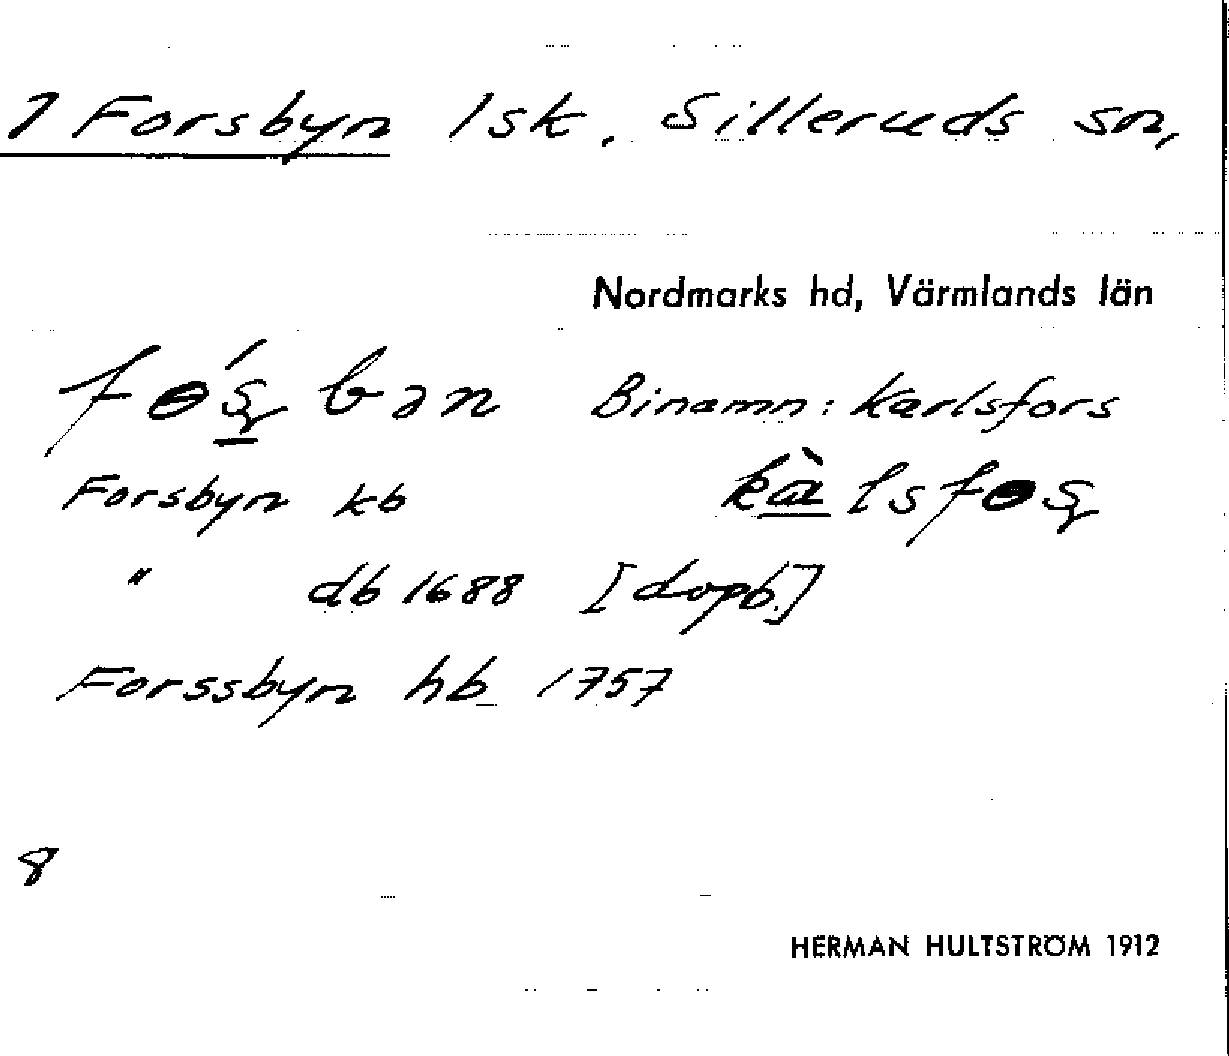 1 Forsbyn 1 sk. Silleruds sn,
Nordmarks hd, Värmlands län
fɵ́ʂbən Binamn: Karlsfors
Forsbyn kb kàlsfɵʂ
" db 1688 [dopb.]
Forssbyn hb 1757
8
HERMAN HULTSTRÖM 1912